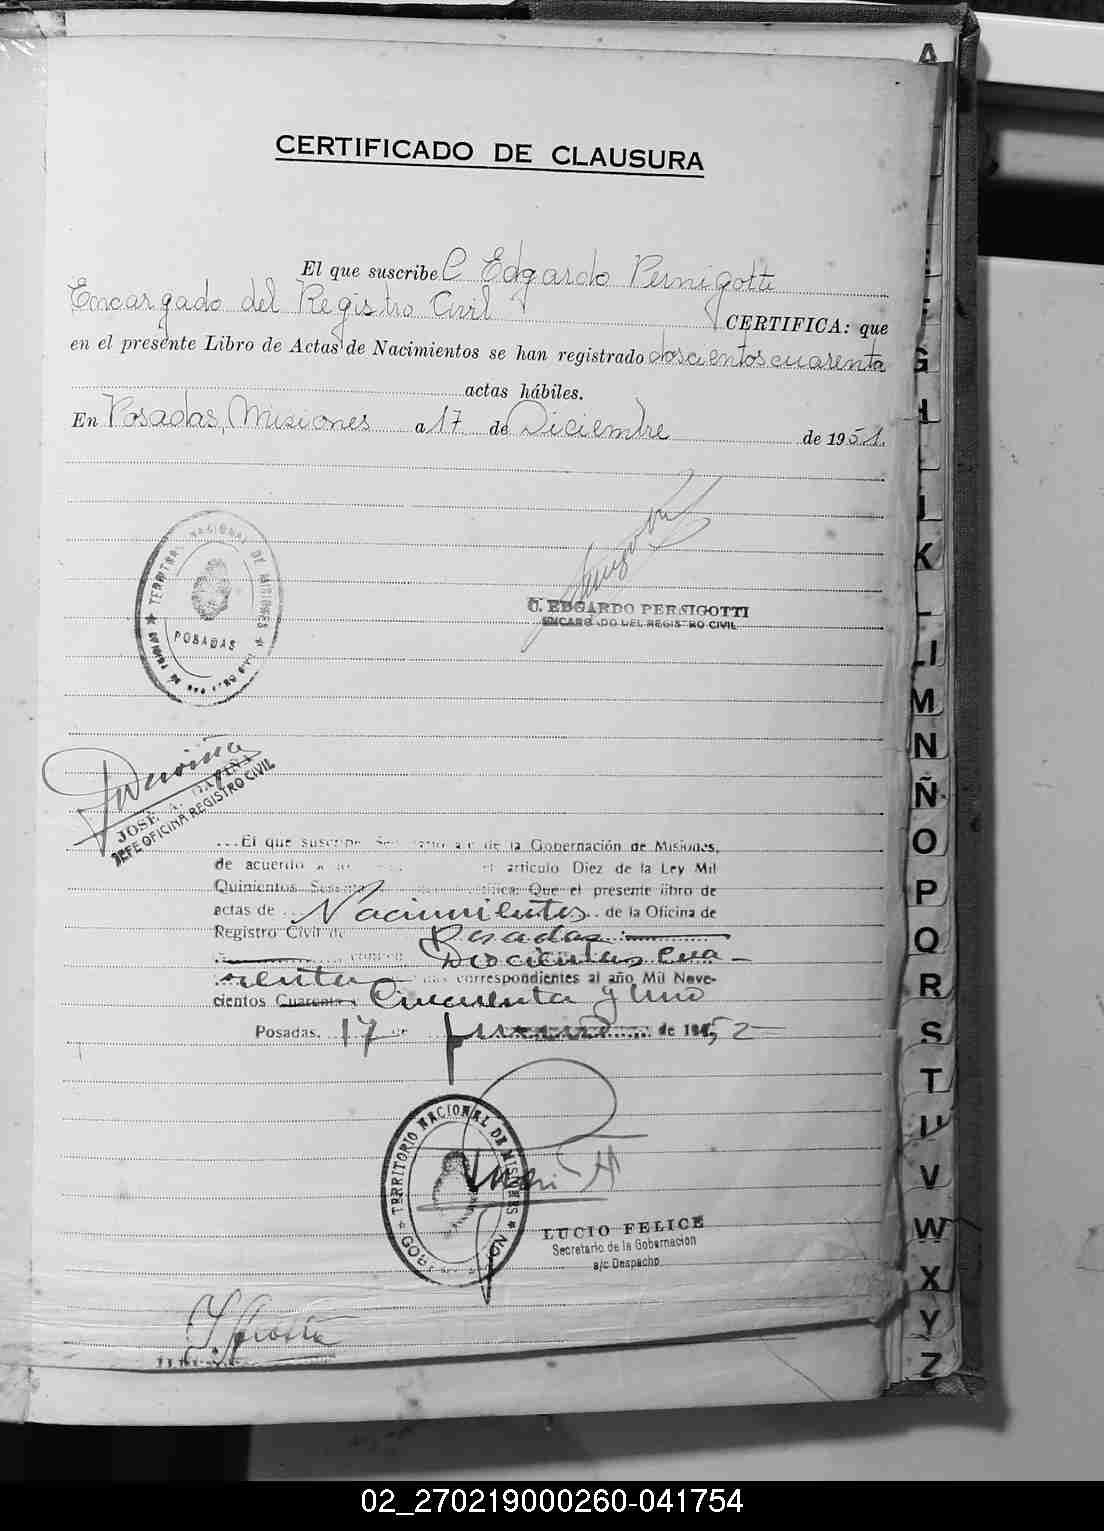 CERTIFICADO DE CLAUSURA
El que suscribe C Edgardo Pernigotti
Encargado del Registro Civil CERTIFICA: que
en el presente Libro de Actas de Nacimientos se han registrado doscientos cuarenta
actas hábiles.
En Posadas, Misiones a 17 de Diciembre de 1951.
TERRITORIO NACIONAL DE MISIONES
POSADAS
C. EDGARDO PERNIGOTTI
ENCARGADO DEL REGISTRO CIVIL
JOSÉ A.
JEFE OFICINA REGISTRO CIVIL
El que suscribe de la Gobernación de Misiones,
de acuerdo el artículo Diez de la Ley Mil
Quinientos Que el presente libro de
actas de Nacimientos de la Oficina de
Registro Civil de Posadas
Doscientas cua-
renta correspondientes al año Mil Nove-
cientos Cuarenta y Cincuenta y Uno
Posadas, 17 de de 1952
TERRITORIO NACIONAL DE MISIONES
GOBERNACION
LUCIO FELICE
Secretario de la Gobernación
a/c Despacho
A
G
H
I
J
K
L
M
N
Ñ
O
P
Q
R
S
T
U
V
W
X
Y
Z
02_270219000260-041754